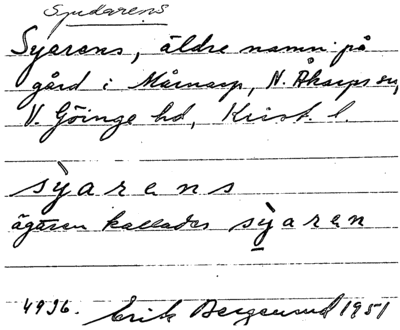 Spidarens
Syarens, äldre namn på
gård i Mårnarp, N. Åkarps sn,
V. Göinge hd, Krist. l.
sỳarens
ägaren kallades sỳaren
4936. Erik Bergsund 1951